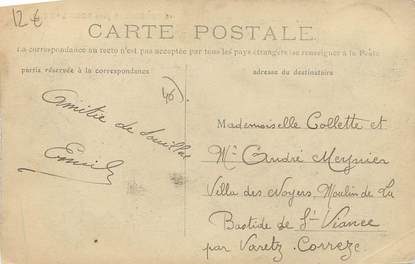 12 €
CARTE POSTALE
La correspondance au recto n'est pas acceptée par tous les pays étrangers (se renseigner à la Poste
partie réservée à la correspondance
adresse du destinataire
46)
Amitié de Souillac
Emile
Mademoiselle Collette et
Mr André Meynier
Villa des Noyers Moulin de La
Bastide de St Viance
par Varetz. Corrèze